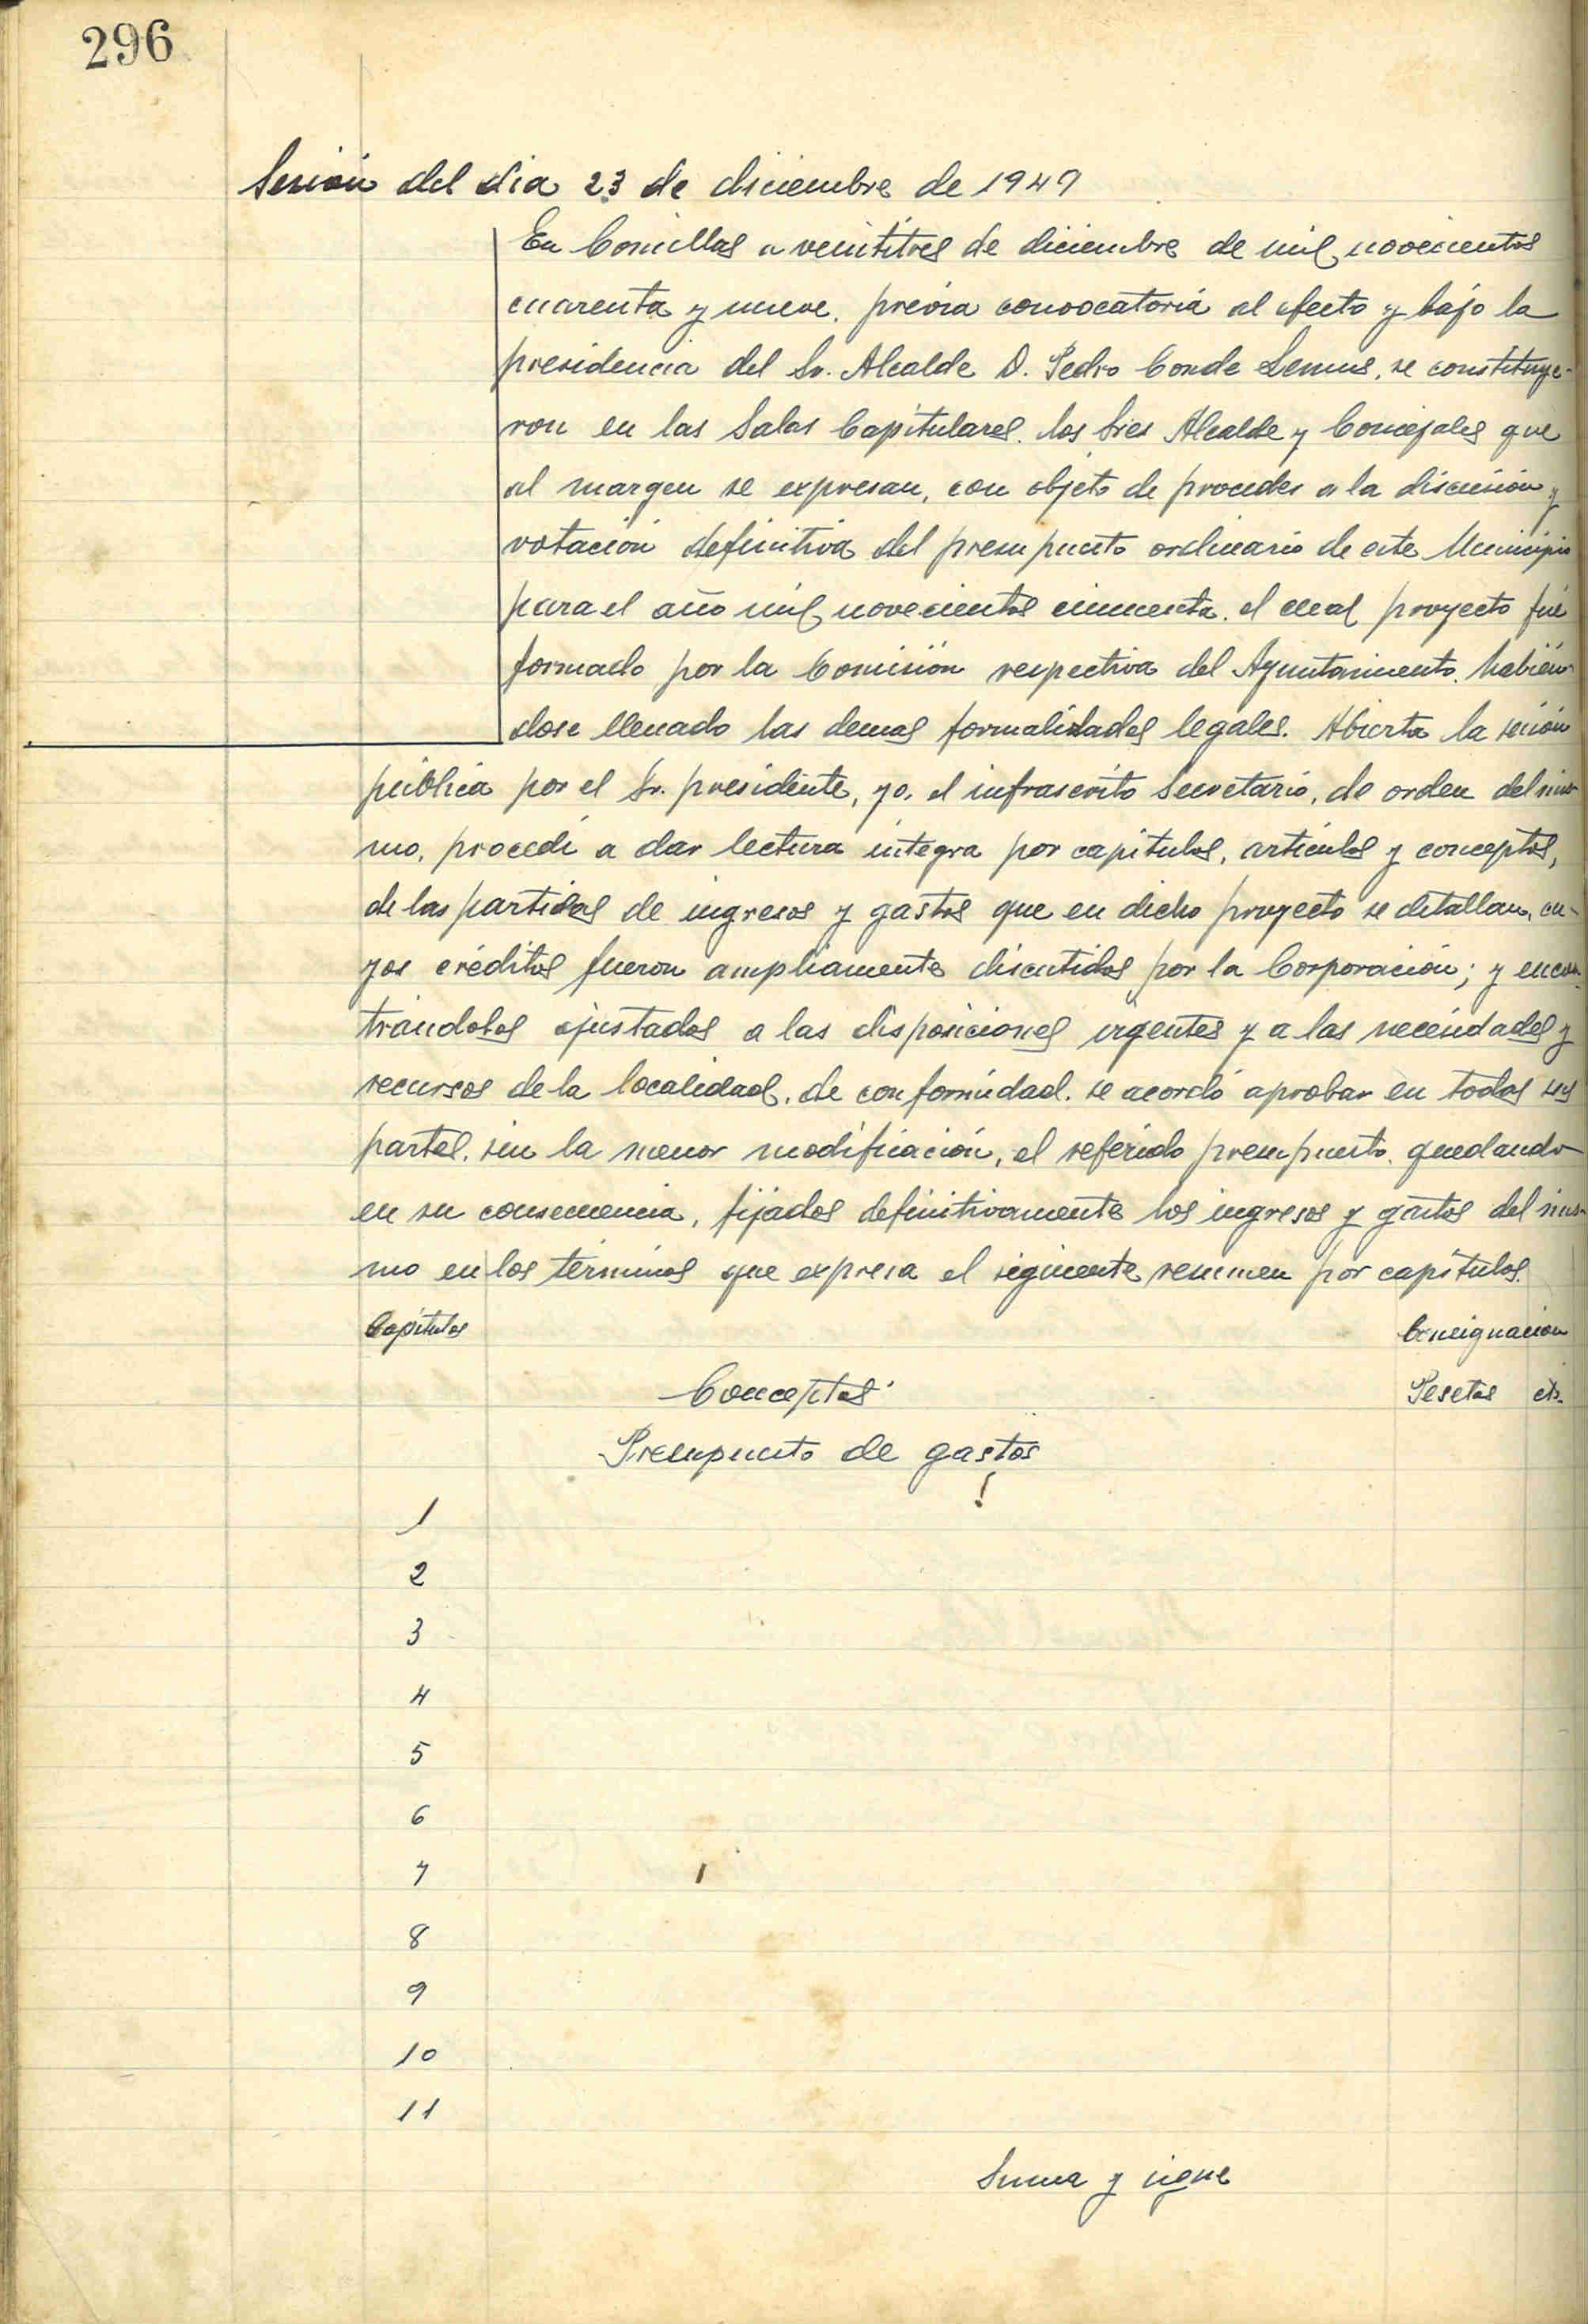 296
Sesión del dia 23 de diciembre de 1949
En Comillas a veintitres de diciembre de mil novecientos
cuarenta y nueve, previa convocatoria al efecto y bajo la
presidencia del Sr. Alcalde D. Pedro Conde Lemus, se constituye-
ron en las Salas Capitulares, los Sres Alcalde y Concejales que
al margen se expresan, con objeto de proceder a la discusion y
votación definitiva del presupuesto ordinario de este Municipio
para el año mil novecientos cincuenta, el cual proyecto fué
formado por la Comisión respectiva del Ayuntamiento, habién-
dose llenado las demas formalidades legales. Abierta la sesión
pública por el Sr. presidente, yo, el infrascrito Secretario, de orden del mis-
mo, procedí a dar lectura integra por capitulos, articulos y conceptos,
de las partidas de ingresos y gastos que en dicho proyecto se detallan, cu-
yos créditos fueron ampliamente discutidos por la Corporación; y encon-
trándolos ajustados a las disposiciones vigentes y a las necesidades y
recursos de la localidad, de conformidad, se acordó aprobar en todas sus
partes, sin la menor modificación, el referido presupuesto, quedando
en su consecuencia, fijados definitivamente los ingresos y gastos del mis-
mo en los términos que expresa el siguiente resumen por capítulos.
Capítulos Consignación
Conceptos Pesetas cts.
Presupuesto de gastos
1
2
3
4
5
6
7
8
9
10
11
Suma y sigue